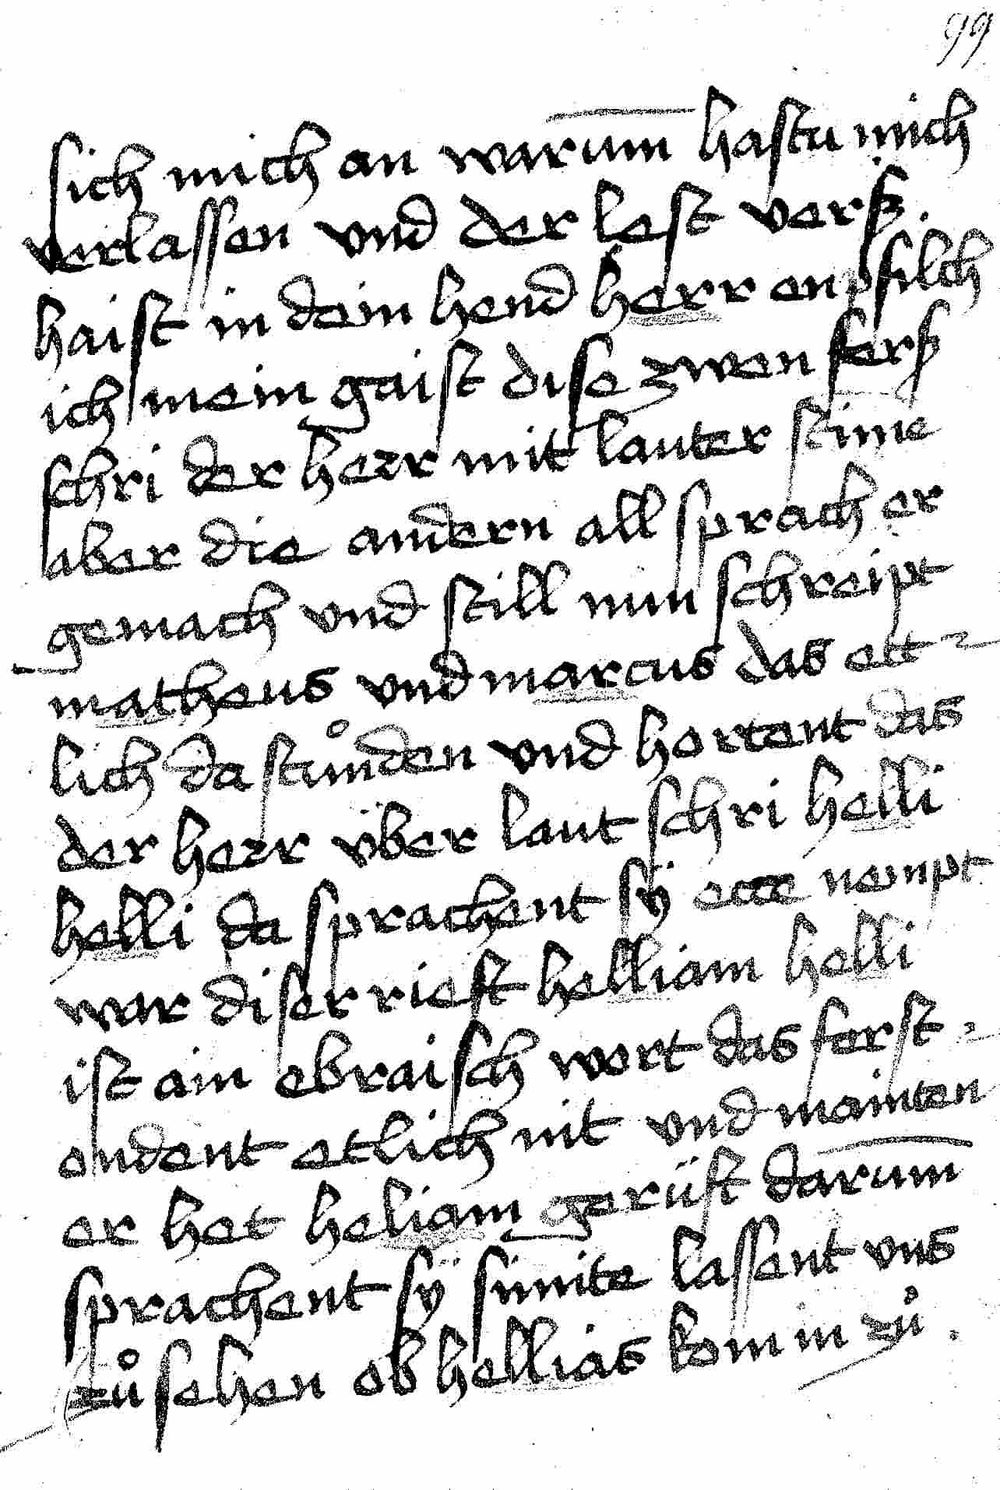 99
sich mich an warum̄ hastu mich
verlassen vnd der lest versß.
haist in dein hend herr enpfilch
ich mein gaist dise zwen fersß
schri der herr mit lauter stime
aber die andern all sprach er
gemach vnd still nun schreipt
matheus vnd marcus das ett=
lich da stůnden vnd hortent das
der herr vber laut schri helli
helli da sprachent sÿ ecce nempt
war diser rieft helliam helli
ist ain ebraisch wort das ferst=
ondent etlich nit vnd mainten
er het heliam gerüft darum̄
sprachent sÿ sinite lassent vns
zů sehen ob hellias kom in zů.